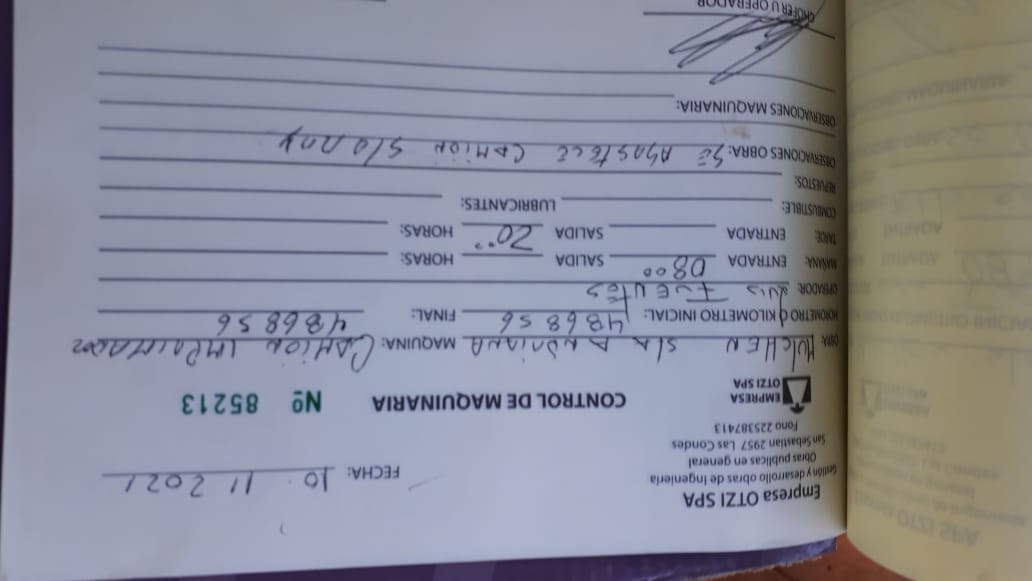 Empresa OTZI SPA
Gestión y desarrollo obras de Ingeniería
Obras publicas en general
San Sebastian 2957 Las Condes
Fono 225387413
FECHA: 10 11 2021
EMPRESA
OTZI SPA
CONTROL DE MAQUINARIA Nº 85213
OBRA: MULCHEN S/A ANDRIANA MAQUINA: CAMION IMPRIMADOR
HOROMETRO O KILOMETRO INICIAL: 486856 FINAL: 486856
OPERADOR: LUIS FUENTES
MAÑANA: ENTRADA 08°° SALIDA HORAS:
TARDE: ENTRADA SALIDA 20°° HORAS:
COMBUSTIBLE: LUBRICANTES:
REPUESTOS:
OBSERVACIONES OBRA: SE ABASTECE CAMION
OBSERVACIONES MAQUINARIA:
CHOFER U OPERADOR